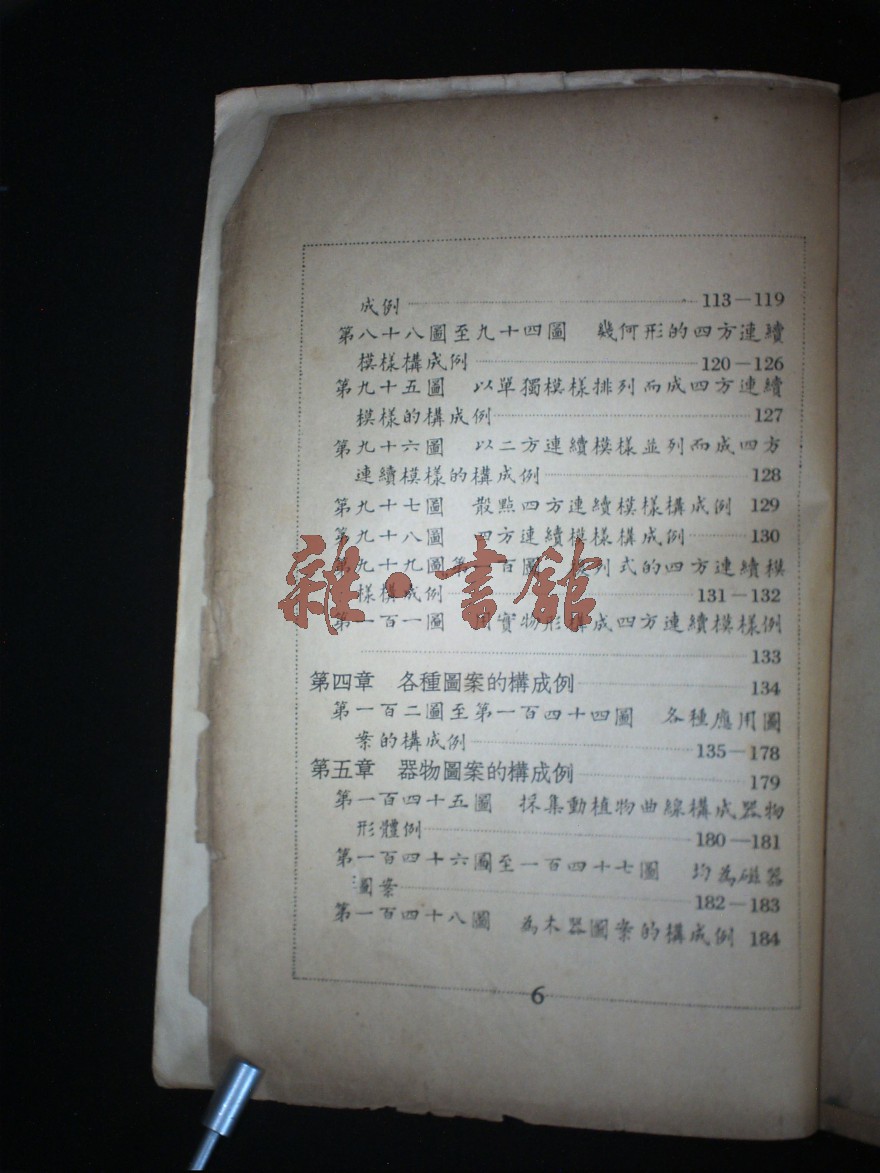 成例 113－119
第八十八圖至九十四圖 幾何形的四方連續
模樣構成例 120－126
第九十五圖 以單獨模樣排列而成四方連續
模樣的構成例 127
第九十六圖 以二方連續模樣並列而成四方
連續模樣的構成例 128
第九十七圖 散點四方連續模樣構成例 129
第九十八圖 四方連續模樣構成例 130
第九十九圖第一百圖 列式的四方連續模
樣構成例 131－132
第一百一圖 用實物形構成四方連續模樣例
133
雜·書館
第四章 各種圖案的構成例 134
第一百二圖至第一百四十四圖 各種應用圖
案的構成例 135－178
第五章 器物圖案的構成例 179
第一百四十五圖 採集動植物曲線構成器物
形體例 180－181
第一百四十六圖至一百四十七圖 均為磁器
圖案 182－183
第一百四十八圖 為木器圖案的構成例 184
6